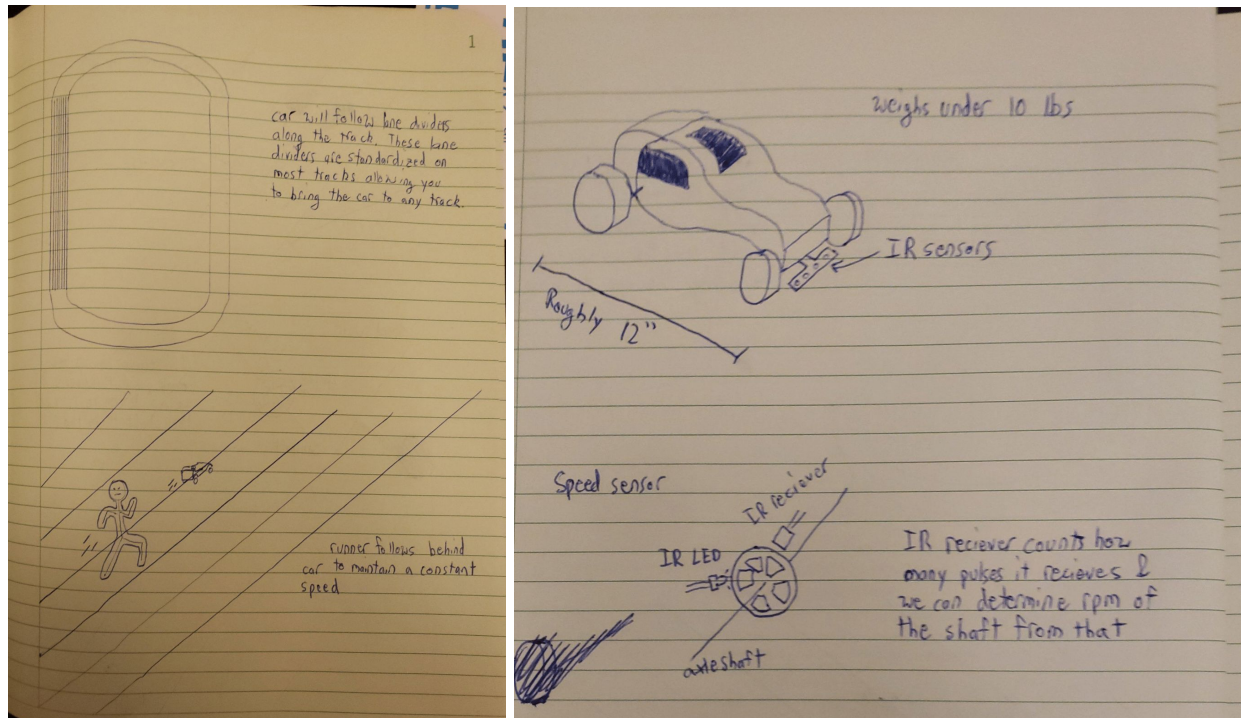 1
car will follow lane dividers
along the track. These lane
dividers are standardized on
most tracks allowing you
to bring the car to any track.
runner follows behind
car to maintain a constant
speed
weighs under 10 lbs
IR sensors
Roughly 12"
Speed sensor
IR reciever
IR LED
axle shaft
IR reciever counts how
many pulses it recieves &
we can determine rpm of
the shaft from that